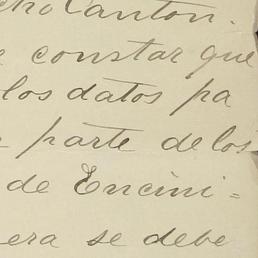 cho Canton.
e constar que
los datos pa
parte de los
de Encini=
era se debe